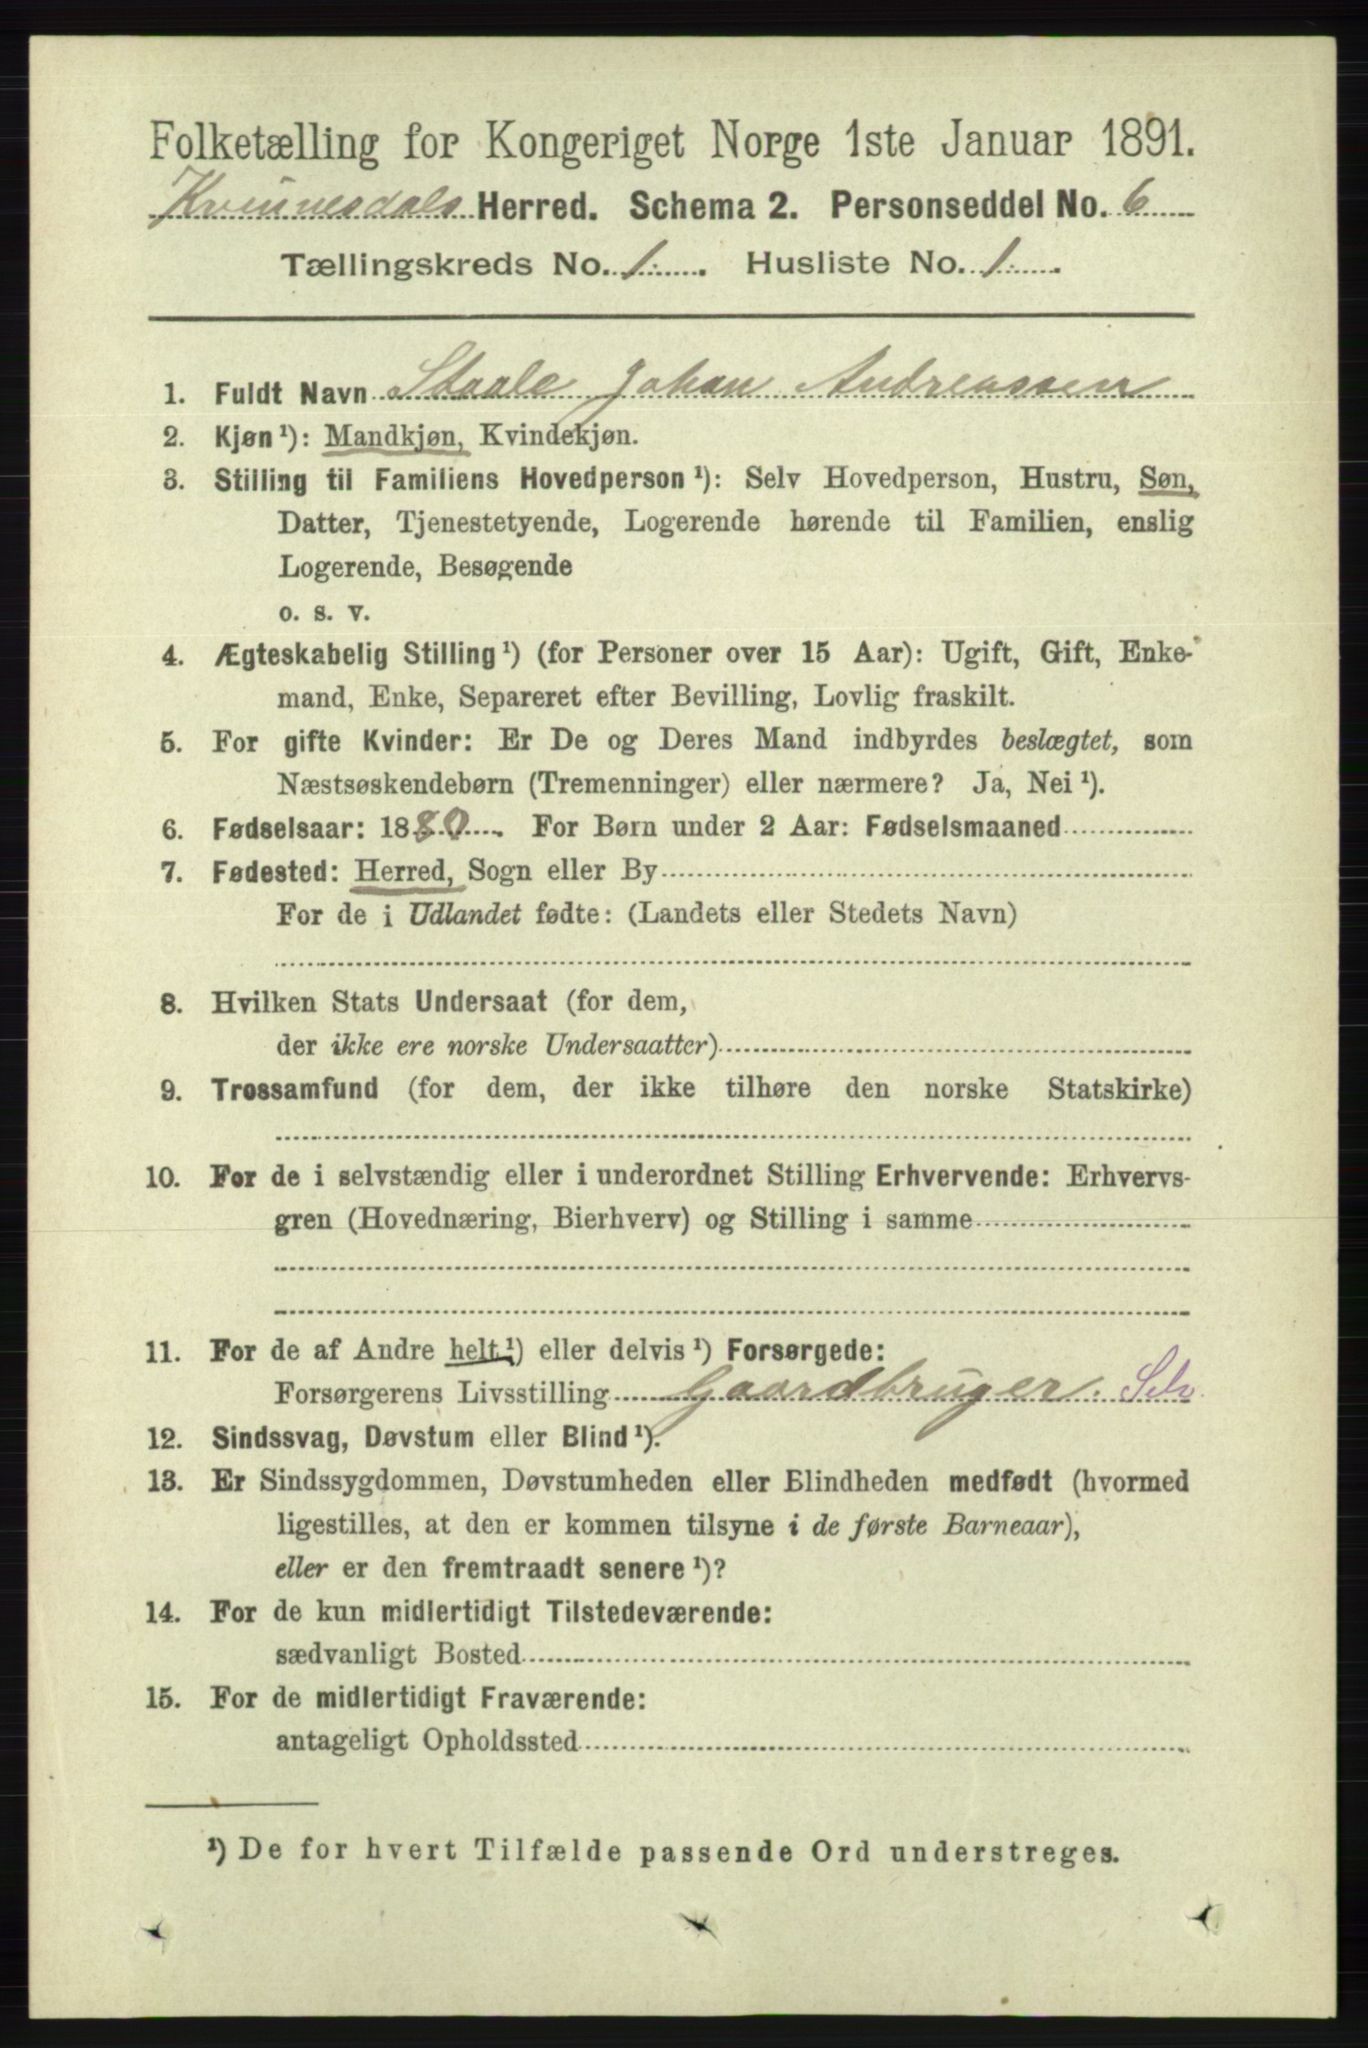 Folketælling for Kongeriget Norge 1ste Januar 1891.
Kvinnesdals Herred. Schema 2. Personseddel No. 6
Tællingskreds No. 1. Husliste No. 1.
1. Fuldt Navn Staale Johan Andreassen
2. Kjøn¹): Mandkjøn, Kvindekjøn.
3. Stilling til Familiens Hovedperson¹): Selv Hovedperson, Hustru, Søn,
Datter, Tjenestetyende, Logerende hørende til Familien, enslig
Logerende, Besøgende
o. s. v.
4. Ægteskabelig Stilling¹) (for Personer over 15 Aar): Ugift, Gift, Enke-
mand, Enke, Separeret efter Bevilling, Lovlig fraskilt.
5. For gifte Kvinder: Er De og Deres Mand indbyrdes beslægtet, som
Næstsøskendebørn (Tremenninger) eller nærmere? Ja, Nei¹).
6. Fødselsaar: 1880. For Børn under 2 Aar: Fødselsmaaned
7. Fødested: Herred, Sogn eller By
For de i Udlandet fødte: (Landets eller Stedets Navn)
8. Hvilken Stats Undersaat (for dem,
der ikke ere norske Undersaatter)
9. Trossamfund (for dem, der ikke tilhøre den norske Statskirke)
10. For de i selvstændig eller i underordnet Stilling Erhvervende: Erhvervs-
gren (Hovednæring, Bierhverv) og Stilling i samme
11. For de af Andre helt¹) eller delvis¹) Forsørgede:
Forsørgerens Livsstilling Gaardbruger. Selv
12. Sindssvag, Døvstum eller Blind¹).
13. Er Sindssygdommen, Døvstumheden eller Blindheden medfødt (hvormed
ligestilles, at den er kommen tilsyne i de første Barneaar),
eller er den fremtraadt senere¹)?
14. For de kun midlertidigt Tilstedeværende:
sædvanligt Bosted
15. For de midlertidigt Fraværende:
antageligt Opholdssted
¹) De for hvert Tilfælde passende Ord understreges.